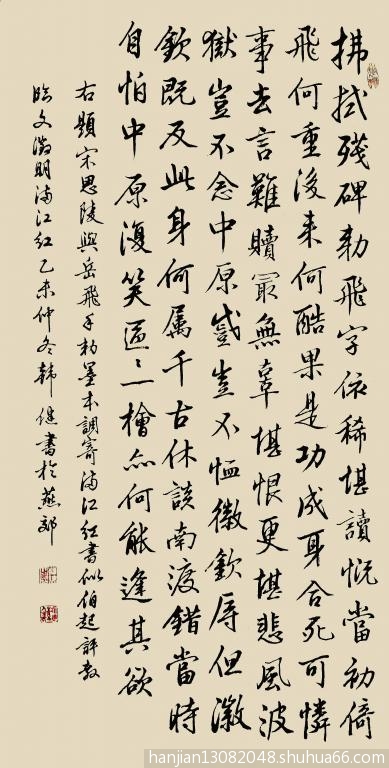 拂拭殘碑勅飛字依稀堪讀慨當初倚
飛何重後来何酷果是功成身合死可憐
事去言難贖最無辜堪恨更堪悲風波
獄豈不念中原蹙豈不恤徽欽辱但徽
欽既反此身何屬千古休談南渡錯當時
自怕中原復笑區々一檜亦何能逢其欲
右題宋思陵與岳飛手勅墨本調寄滿江紅書似伯起評教
臨文徵明滿江紅乙未仲冬韓健書於燕郊
hanjian13082048.shuhua66.com